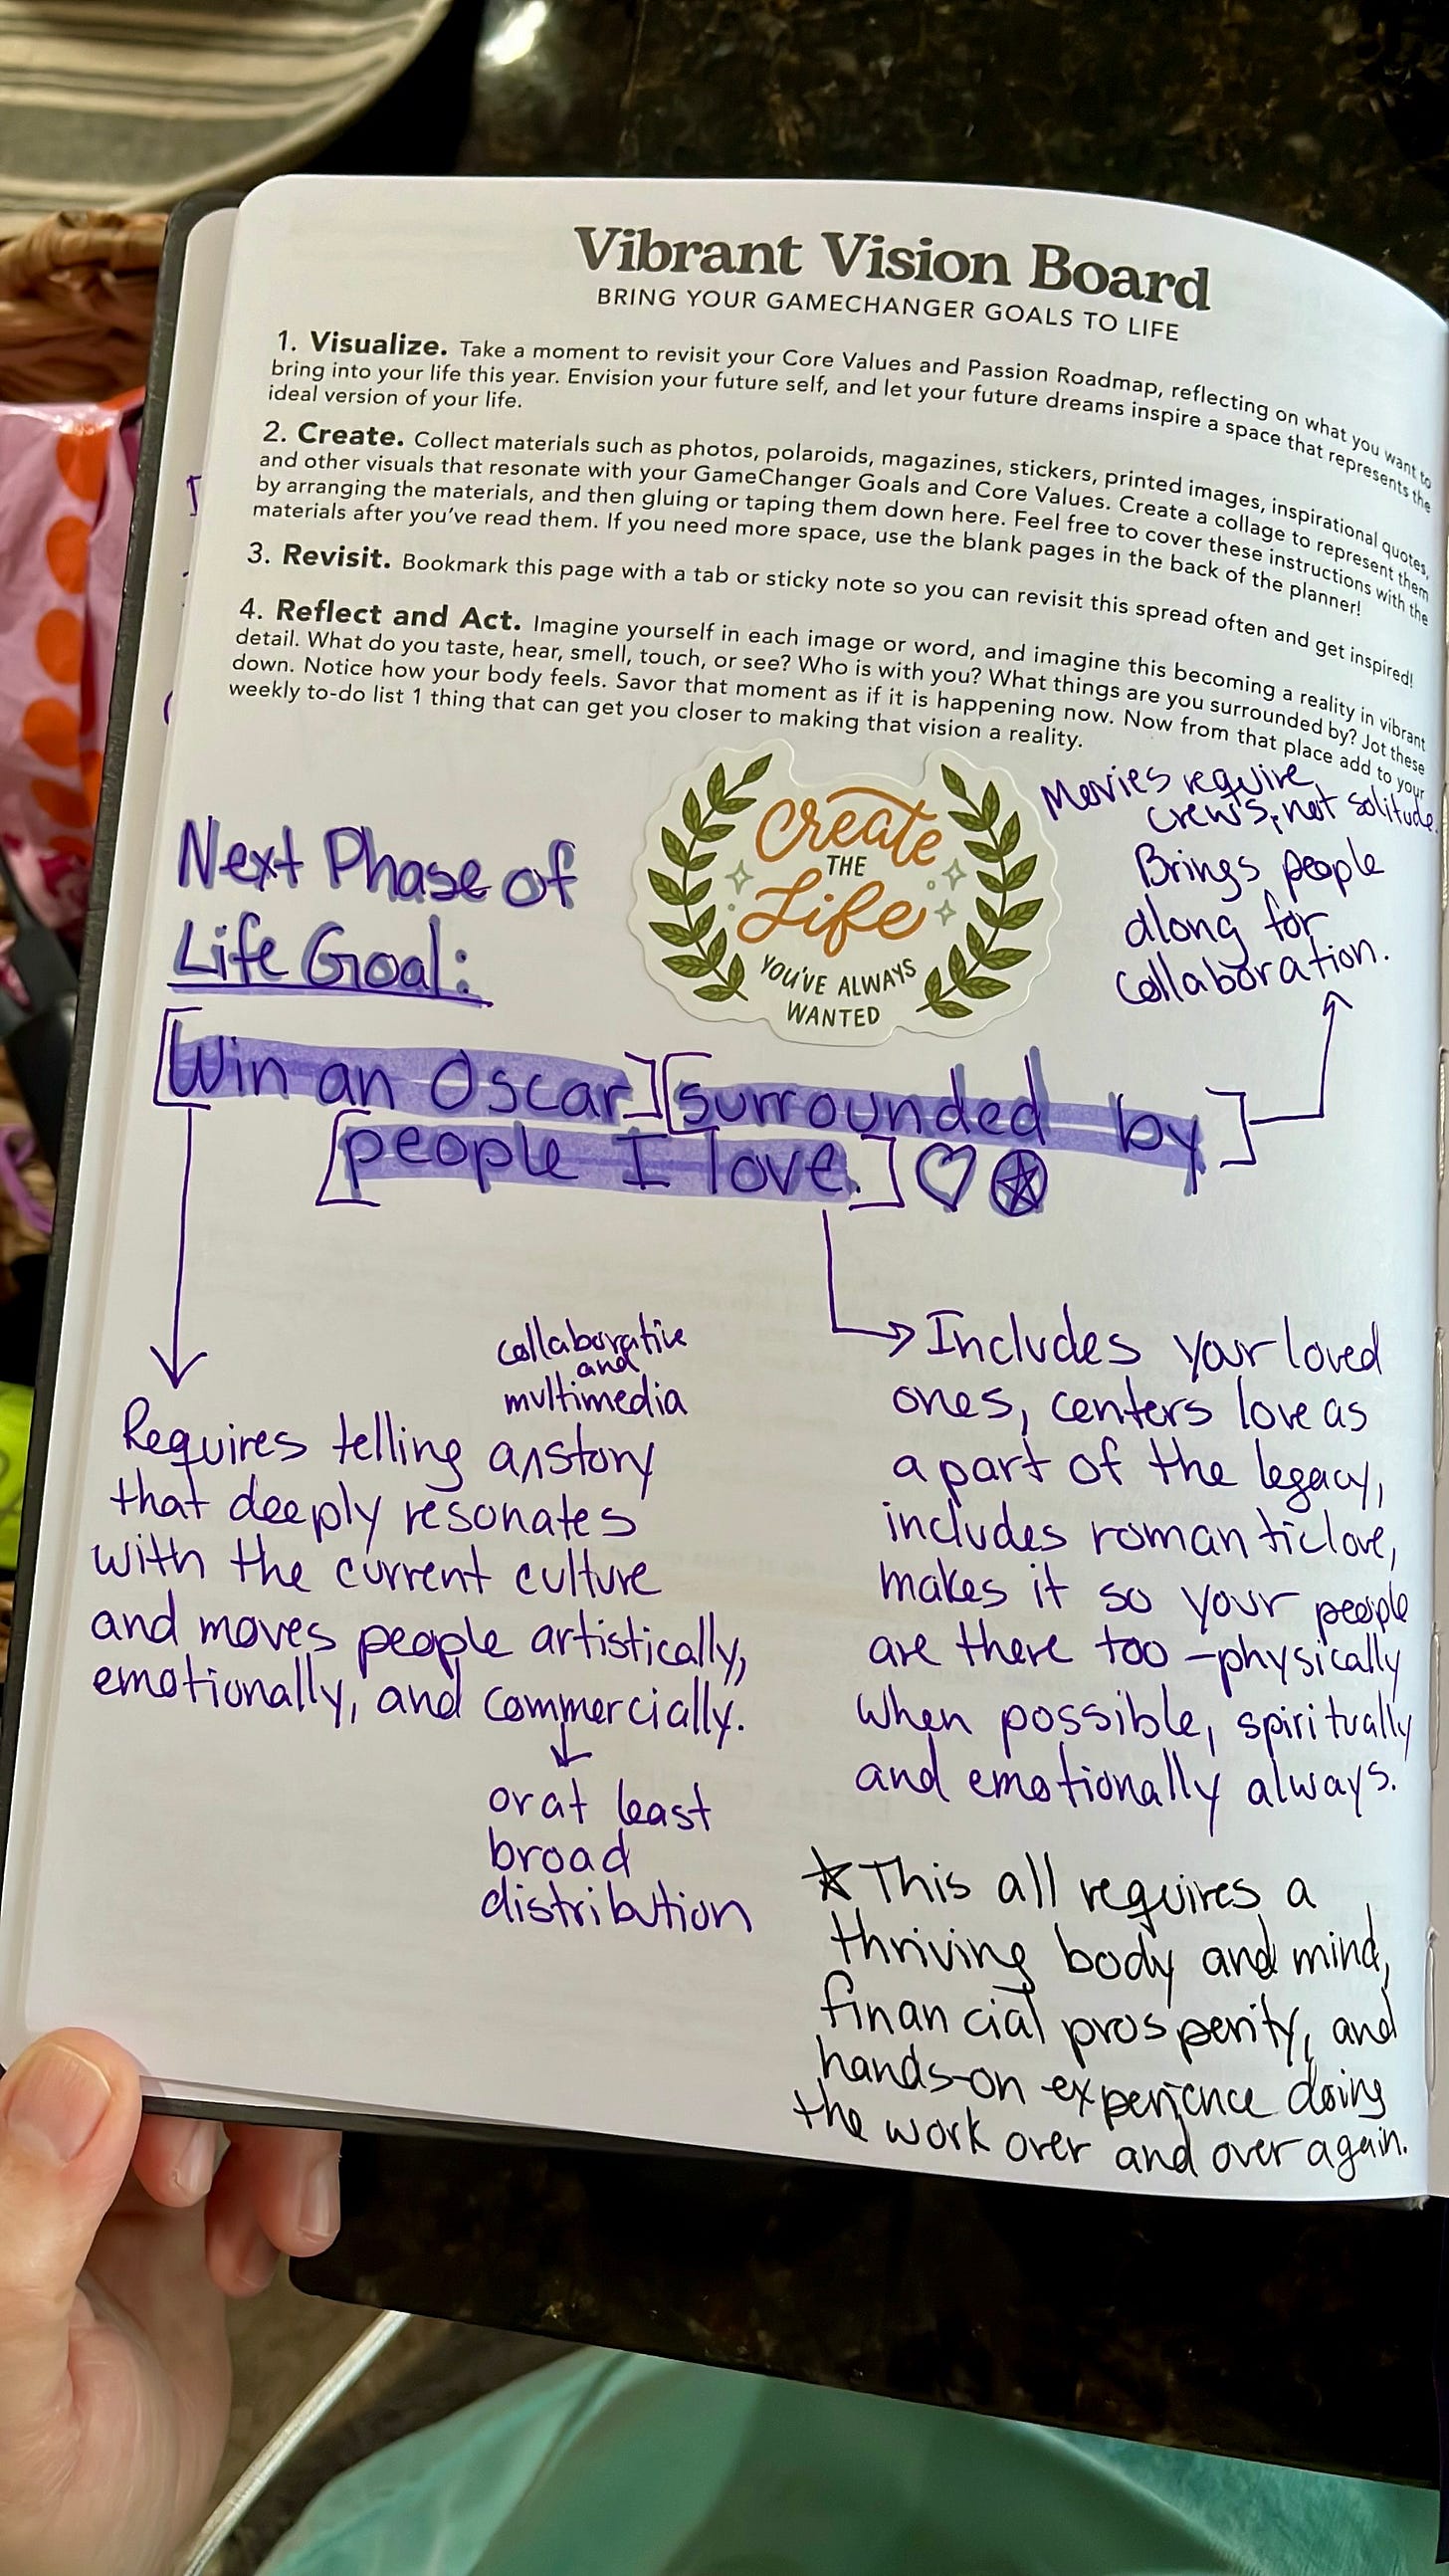 Vibrant Vision Board
BRING YOUR GAMECHANGER GOALS TO LIFE
1. Visualize. Take a moment to revisit your Core Values and Passion Roadmap, reflecting on what you want to
bring into your life this year. Envision your future self, and let your future dreams inspire a space that represents the
ideal version of your life.
2. Create. Collect materials such as photos, polaroids, magazines, stickers, printed images, inspirational quotes,
and other visuals that resonate with your GameChanger Goals and Core Values. Create a collage to represent them
by arranging the materials, and then gluing or taping them down here. Feel free to cover these instructions with the
materials after you've read them. If you need more space, use the blank pages in the back of the planner!
3. Revisit. Bookmark this page with a tab or sticky note so you can revisit this spread often and get inspired!
4. Reflect and Act. Imagine yourself in each image or word, and imagine this becoming a reality in vibrant
detail. What do you taste, hear, smell, touch, or see? Who is with you? What things are you surrounded by? Jot these
down. Notice how your body feels. Savor that moment as if it is happening now. Now from that place add to your
weekly to-do list 1 thing that can get you closer to making that vision a reality.
Next Phase of
Life Goal:
Create
THE
Life
YOU'VE ALWAYS
WANTED
Movies require
crews, not solitude.
Brings people
along for
collaboration.
[Win an Oscar] [surrounded by]
[people I love.]
collaborative
and
multimedia
Requires telling a^story
that deeply resonates
with the current culture
and moves people artistically,
emotionally, and commercially.
or at least
broad
distribution
Includes your loved
ones, centers love as
a part of the legacy,
includes romantic love,
makes it so your people
are there too - physically
when possible, spiritually
and emotionally always.
☆ This all requires a
thriving body and mind,
financial prosperity, and
hands-on experience doing
the work over and over again.